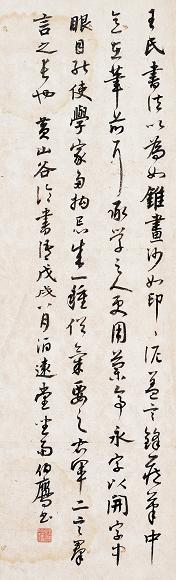 王氏書法以為如錐畫沙如印〻泥蓋言鋒藏筆中
意在筆前耳承學之人更用蘭亭永字以開字中
眼目能使學家多拘忌生一種俗氣要之右軍二言羣
言之長也 黃山谷論書語戊戌八月泊遠堂坐雨伯鷹書